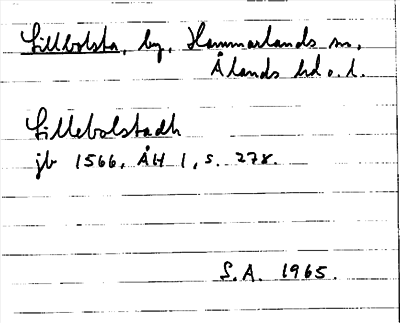 Lillbolsta, by, Hammarlands sn,
Ålands hd o. l.
Lillebolstadh
jb 1566, ÅH 1, s. 278.
S.A. 1965.